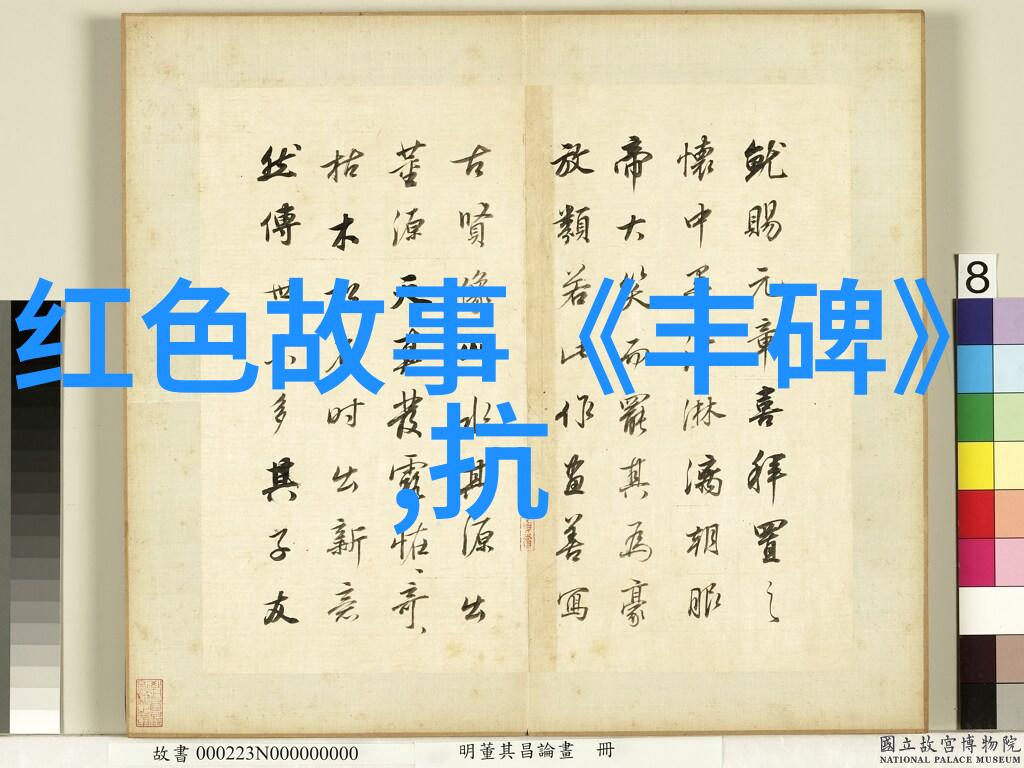 红色故事《丰碑》
,抗
就賜元章喜拜置之
懷中墨汁淋漓朝服
帝大笑而罷其為豪
放類若此作畫善寫
古賢像山水其源出
董源天真發露怪、奇、
枯木松石时出新意
然傳世不多其子友
8
故書 000223N000000000
明董其昌論畫 冊
國立故宮博物院
NATIONAL PALACE MUSEUM